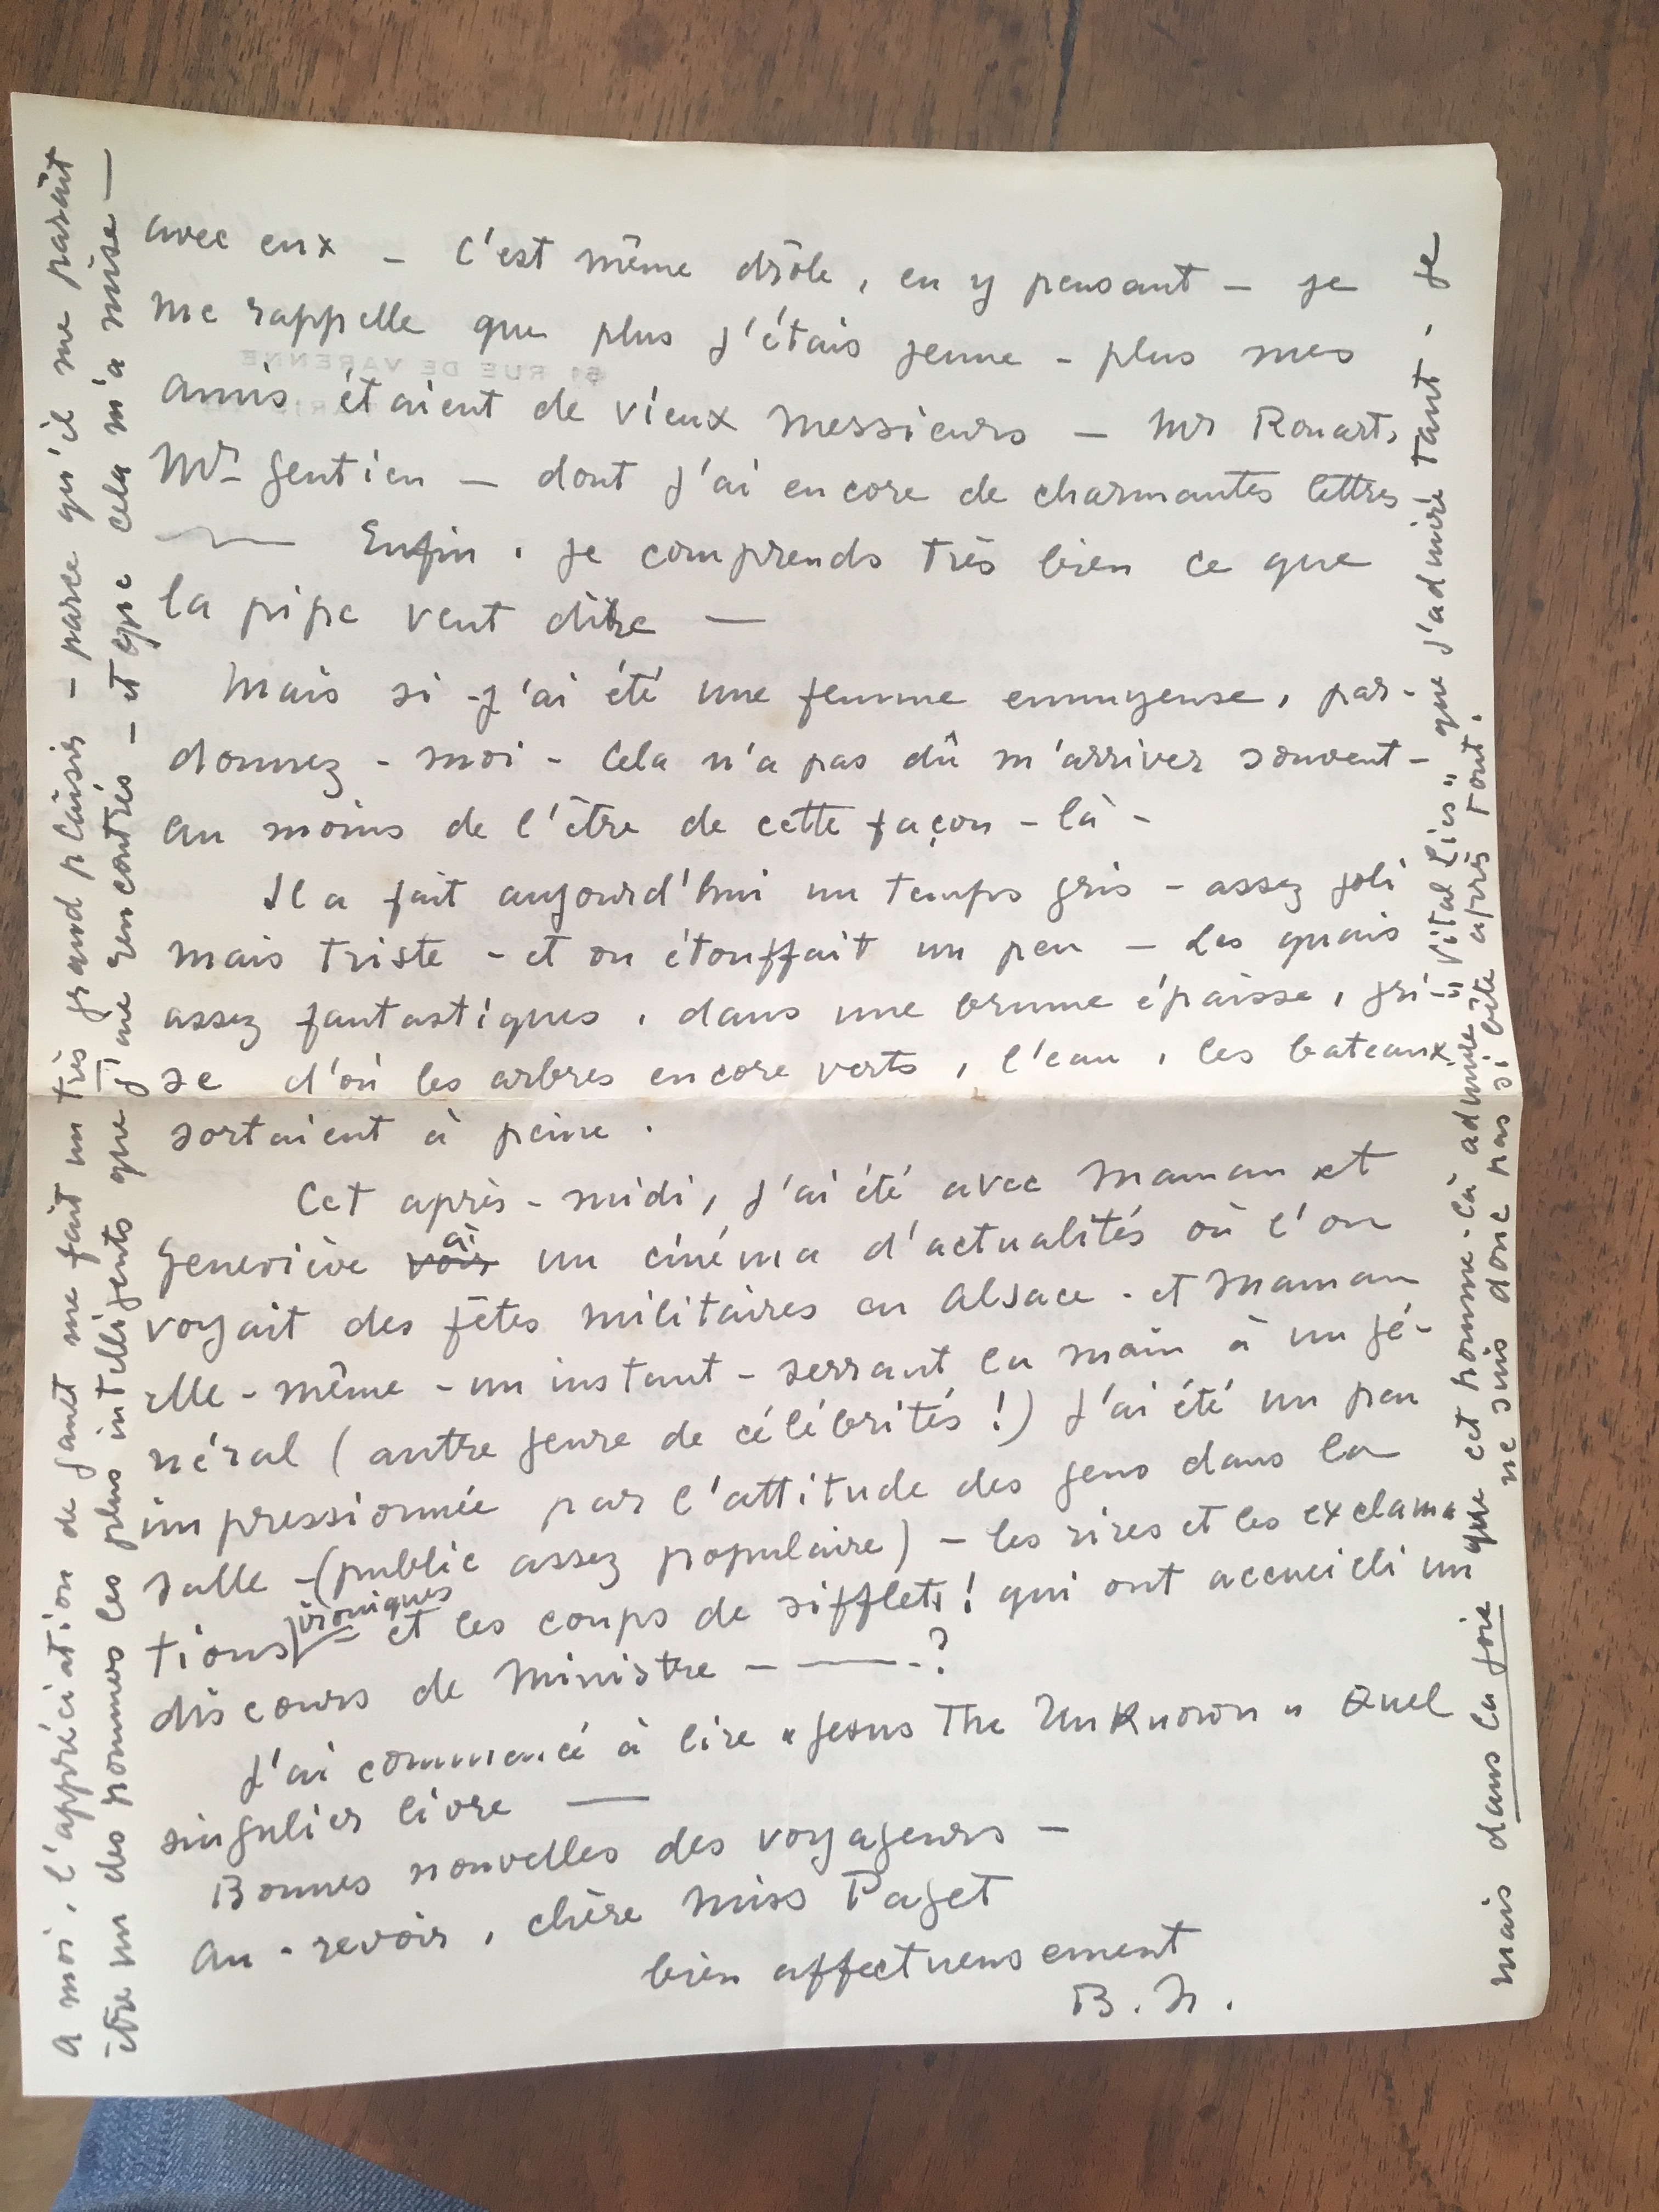 avec eux – C'est même drôle, en y pensant – je
me rappelle que plus j'étais jeune – plus mes
amis étaient de vieux messieurs – Mr Rouart,
Mr Gentien – dont j'ai encore de charmantes lettres
Enfin. je comprends très bien ce que
la pipe veut dire —
Mais si j'ai été une femme ennuyeuse, par-
donnez-moi – Cela n'a pas dû m'arriver souvent –
au moins de l'être de cette façon-là –
Il a fait aujourd'hui un temps gris – assez joli
mais triste – et on étouffait un peu – Les quais
assez fantastiques, dans une brume épaisse, gri-
se d'où les arbres encore verts, l'eau, les bateaux
sortaient à peine.
Cet après-midi, j'ai été avec Maman et
Geneviève voir à un cinéma d'actualités où l'on
voyait des fêtes militaires en Alsace – et Maman
elle-même – un instant – serrant la main à un gé-
néral (autre genre de célébrités !) J'ai été un peu
impressionnée par l'attitude des gens dans la
salle – (public assez populaire) – les rires et les exclama
tions ironiques – et les coups de sifflets ! qui ont accueilli un
discours de Ministre – — – ?
J'ai commencé à lire "Jesus The Unknown" Quel
singulier livre —
Bonnes nouvelles des voyageurs –
Au-revoir, chère Miss Paget
bien affectueusement
B. N.
à moi, l'appréciation de Gantt me fait un très grand plaisir – parce qu'il me paraît
être un des hommes les plus intelligents que j'aie rencontrés – et que cela m'a mise —
mais dans la joie que cet homme-là admire "Vital Lies" que j'admire tant. Je
ne suis donc pas si bête après tout.
61 RUE DE VARENNE